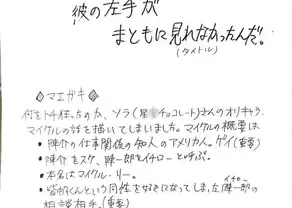 彼の左手が
まともに見れなかったんだ。
(タイトル)
◇マエガキ◇
何をトチ狂ったのか、ソラ(星チョコレート)さんのオリキャラ、
マイケルの話を描いてしまいました。マイケルの概要は
・陳介の仕事関係の知人のアメリカ人。ゲイ(重要)
・陳介をスケ、陳一郎をイチローと呼ぶ。
・本名はマイケル・リー。
くんという同性を好きになってしまい、左陳一郎の
イチロー
相談相手。(重要)